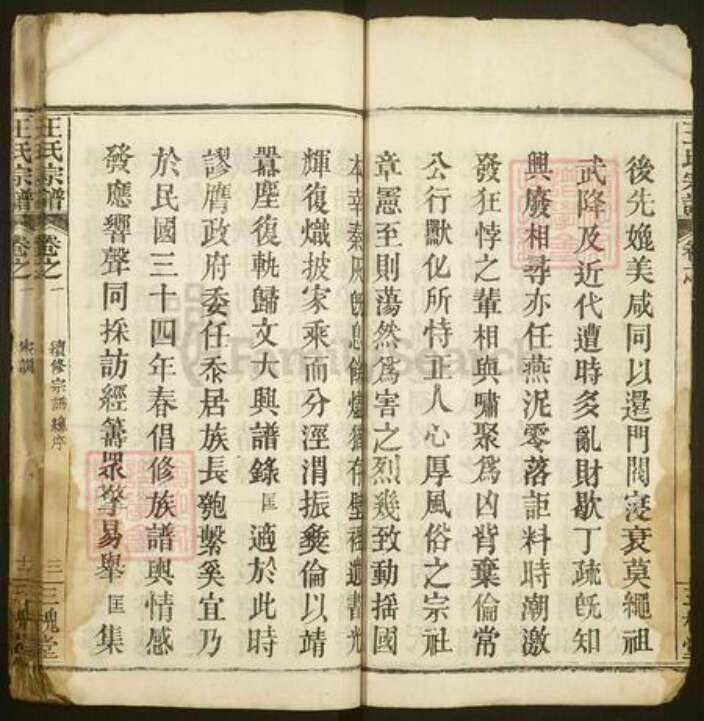 後先媲美咸同以還門閥寖衰莫繩祖
武降及近代遭時多亂財歇丁疏旣知
興廢相尋亦任燕泥零落詎料時潮激
發狂悖之輩相與嘯聚爲凶背棄倫常
公行獸化所恃正人心厚風俗之宗社
章憲至則蕩然爲害之烈幾致動搖國
本幸秦灰旣息餘燼猶存壁裡遺書光
輝復熾披家乘而分涇渭振彝倫以靖
囂塵復軌歸文大興譜錄匡適於此時
謬膺政府委任忝居族長匏繫奚宜乃
於民國三十四年春倡修族譜輿情感
發應響聲同採訪經籌眾擎易舉匡集
王氏宗譜 卷之一 續修宗譜總序 三 三槐堂
王氏宗譜 卷之一 家訓
FamilySearch